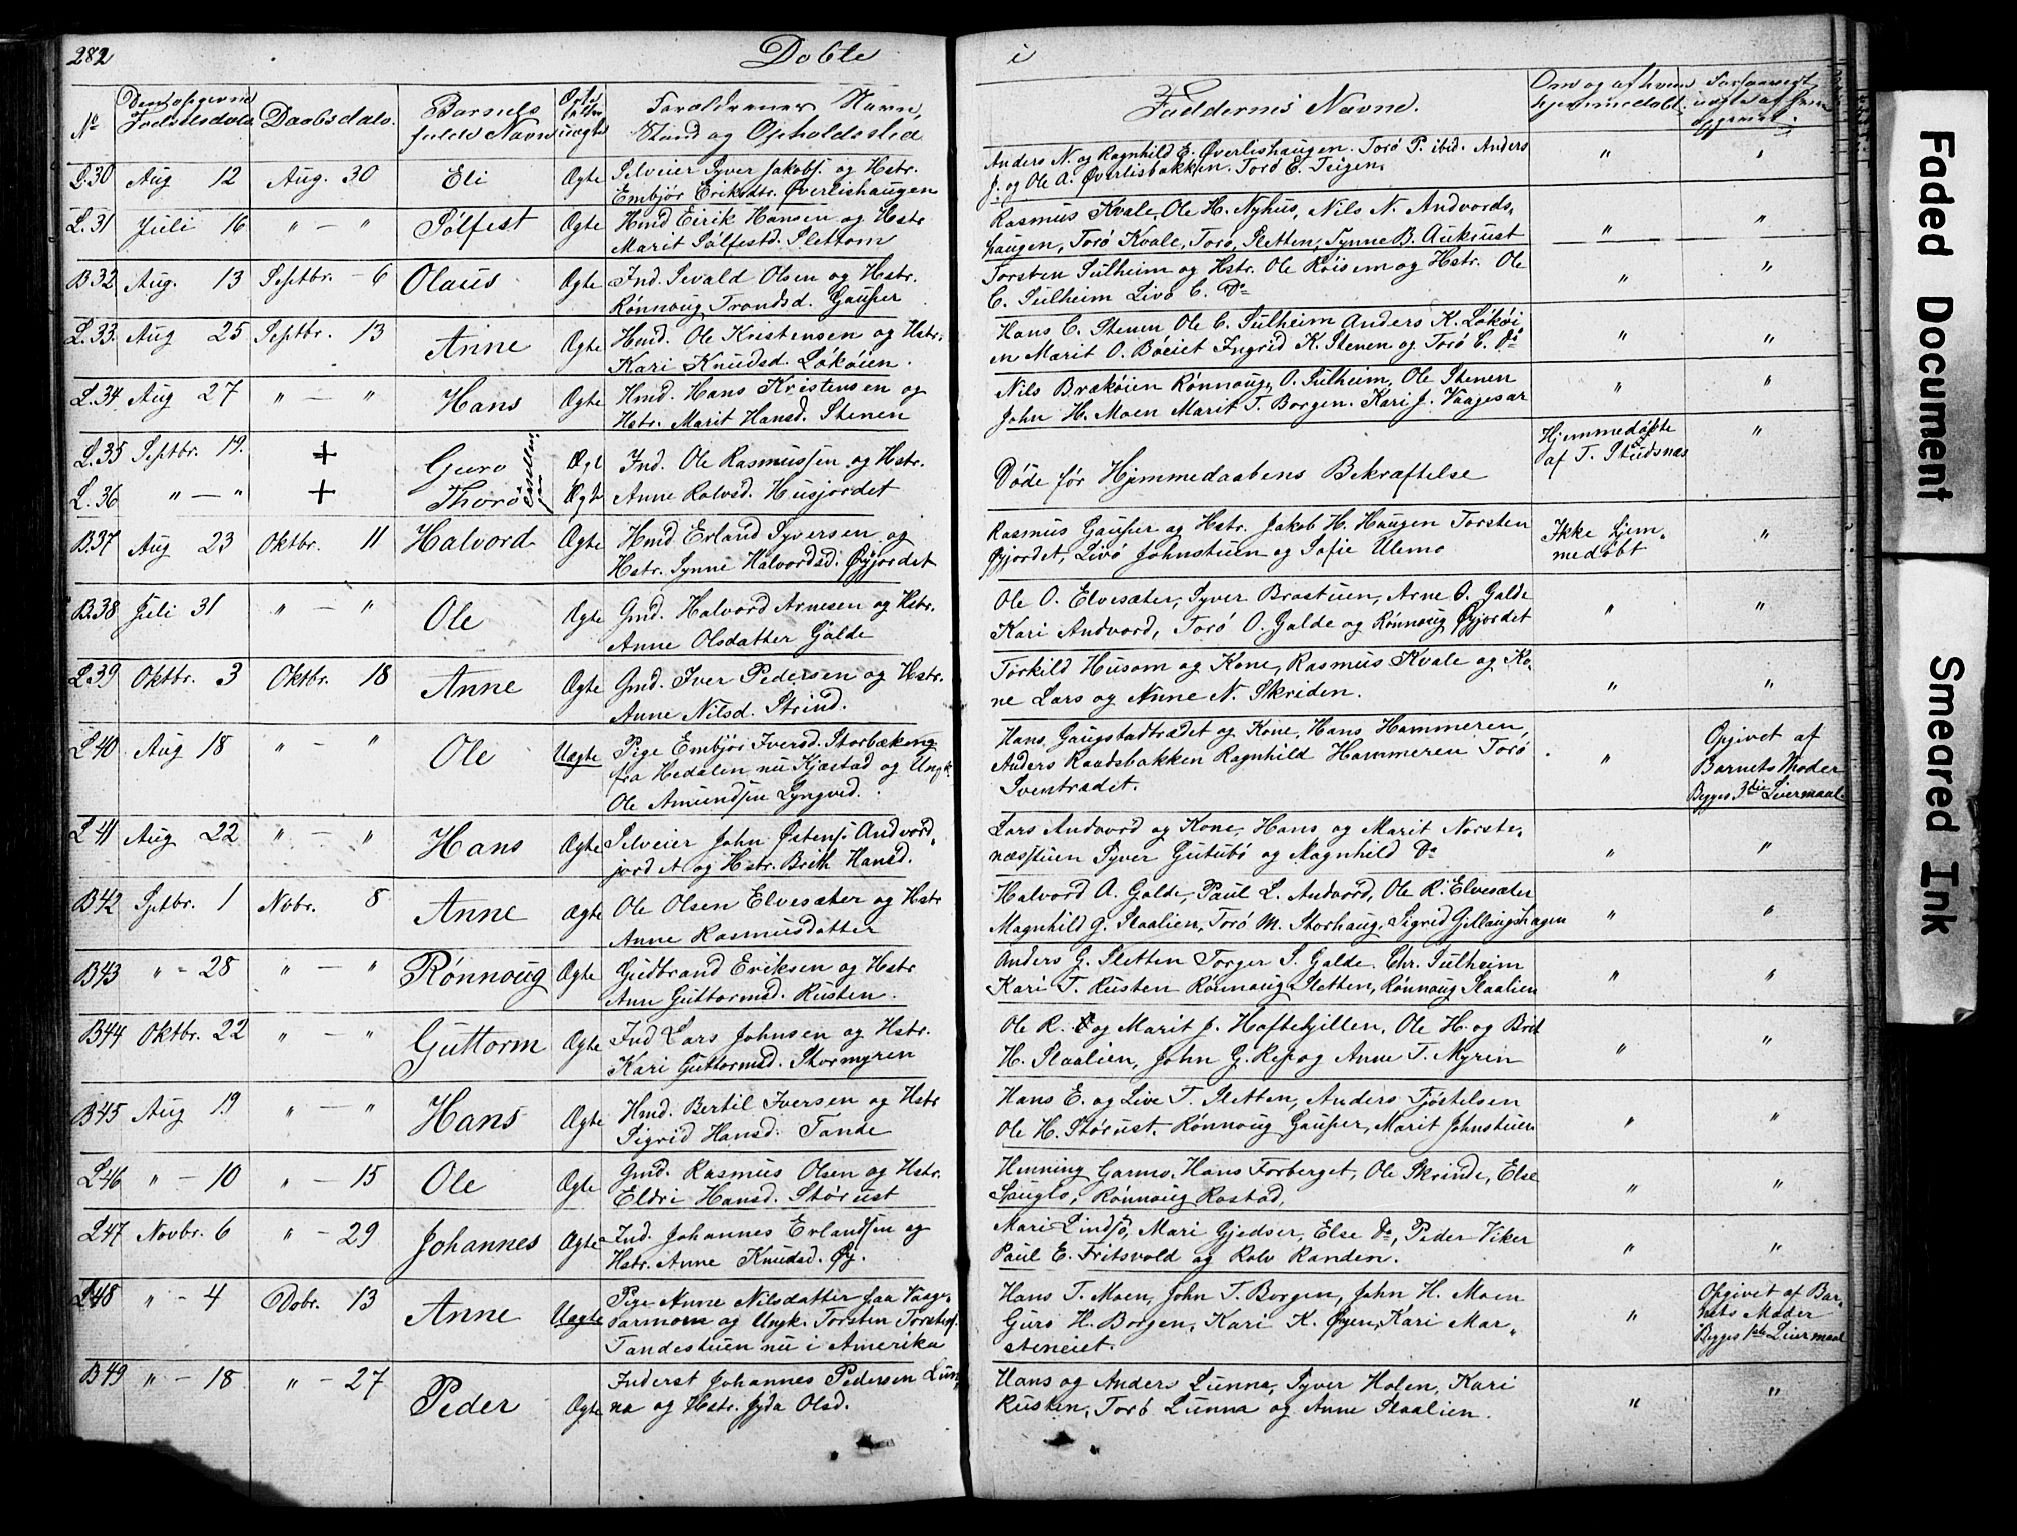 282
Døbte
i
No
Den opgivne Fødselsdato
Daabsdato.
Barnets fulde Navn
Ægte eller uægte
Forældrenes Navn, Stand og Opholdssted
Faddernes Navne.
Om og af hvem hjemmedøbt
L.30 Aug 12 Aug. 30 Eli Ægte Selveier Syver Jakobs. og Hstr.
Embjør Eriksdtr. Øverlishaugen
Anders N. og Ragnhild E. Øverlishaugen. Torø P. ibid. Anders
J. og Ole A. Øverlisbakken. Torø E.
L.31 Juli 16 " — " Sølfest Ægte Hmd Eirik Hansen og Hstr
Marit Sølfestd. Slettom
Rasmus Kvale, Ole H. Nyhus, Nils N. Andvords-
haugen, Torø Kvale, Torø Sletten, Synne B. Aukrust
B.32 Aug. 13 Septbr. — 6 Olaus Ægte Ind. Sevald Olsen og Hstr.
Rønnoug Trondsd. Gaupar
Torsten Sulheim og Hstr. Ole Røisem og Hstr. Ole
C. Sulheim Livø C. Do
L.33. Aug 25 Septbr. 13 Anne Ægte Hmd. Ole Kristensen og Hstr.
Kari Knudsd. Løkøien.
Hans C. Stenen Ole C. Sulheim Anders K. Løkøi-
en Marit O. Bøeiet Ingrid K. Stenen og Torø C. Do
L.34 Aug 27 " — " Hans Ægte Hmd. Hans Kristensen og
Hstr. Marit Hansd. Stenen
Nils Brækøien Rønnoug O. Sulheim, Ole Stenen
John H. Moen Marit T. Borgen. Kari J. Vaagesar
L.35 Septbr. 19. + Guro Ægt Ind. Ole Rasmussen og Hstr.
L.36 " — " + Thorø Ægte Anne Rolvsd. Husjordet
Døde før Hjemmedaabens Bekræftelse
Hjemmedøbte
af T. Studsnæs
B.37 Aug 23 Oktbr. 11 Halvord Ægte Hmd Erland Syversen og
Hstr. Synne Halvordsd. Øyjordet
Rasmus Gauper og Hstr. Jakob H. Haugen Torsten
Øyjordet, Livø Johnstuen og Sofie Ulemo
Ikke hjem-
medøbt
B.38 Juli 31 " — " Ole Ægte Gmd. Halvord Arnesen og Hstr.
Anne Olsdatter Galde
Ole O. Elvesæter, Syver Brostuen, Arne O. Galde
Kari Andvord, Torø O. Galde og Rønnoug Øyjordet
L.39 Oktbr. 3 Oktbr. 18 Anne Ægte Gmd. Iver Pedersen og Hstr.
Anne Nilsd. Strind.
Torkild Husom og Kone, Rasmus Kvale og Ko-
ne Lars og Anne N. Skriden.
L.40 Aug 18 " — " Ole Uægte Pige Embjør Iversd. Storbækeng
fra Hedalen nu Kjæstad og Ungk.
Ole Amundsen Lyngved.
Hans Gaugstadtrædet og Kone, Hans Hammeren,
Anders Raadsbakken Ragnhild Hammeren Torø
Sventrædet.
Opgivet af
Barnets Moder
Begges 3die Leiermaal
L.41 Aug 22 " — " Hans Ægte Selveier John Østens. Andvord-
jordet og Hstr. Brith Hansd.
Lars Andvord og Kone, Hans og Marit Norste-
næsstuen Syver Gutubø og Magnhild Do
B.42 Sptbr. 1 Novbr. 8 Anne ægte Ole Olsen Elvesæter og Hstr
Anne Rasmusdatter
Halvord A. Galde, Paul L. Andvord, Ole R. Elvesæter
Magnhild G. Slaalien, Torø M. Storhaug. Sigrid Gillaugshagen
B.43 " - 28 " — " Rønnoug Ægte Gudbrand Eriksen og Hstr
Ann Guttormsd. Rusten.
Anders G. Sletten Torger S. Galde. Chr. Sulheim
Kari T. Rusten Rønnoug Sletten, Rønnoug Slaalien
B.44 Oktbr. 22 " — " Guttorm Ægte Ind Lars Johnsen og Hstr.
Kari Guttormsd. Stormyren
Ole R. og Marit J. Hoftekjillen, Ole H. og Brit
H. Slaalien, John G. Rep og Anne T. Myren
B.45 Aug 19 " — " Hans Ægte Hmd. Bertil Iversen og Hstr
Sigrid Hansd. Tande
Hans E. og Live T. Sletten, Anders Tjøstelsen
Ole H. Storust. Rønnoug Gauper, Marit Johnstuen
L.46 " — 10 " — 15 Ole Ægte Gmd. Rasmus Olsen og Hstr.
Eldri Hansd. Storust
Henning Garmo, Hans Forberget, Ole Skrinde, Else
Sauglo, Rønnoug Rostad,
L.47 Novbr. 6 " — 29 Johannes Ægte Ind. Johannes Erlandsen og
Hstr. Anne Knudsd. Øy.
Mari Lindsø, Mari Gjedser, Else Do, Peder Viker
Paul E. Fritsvold og Rolv Randen.
L.48 " — 4 Dcbr. 13 Anne Uægte Pige Anne Nilsdatter fra Vaage,
Sarmoen og Ungk. Torsten Torstens.
Tandestuen nu i Amerika
Hans T. Moen, John T. Borgen, John H. Moen
Guro H. Borgen, Kari K. Øyen, Kari Mar-
steneiet.
Opgivet af Bar-
nets Moder
Begges 1ste Leiermaal
B.49 " — 18 " — 27 Peder Ægte Inderst Johannes Pedersen Lun-
na og Hstr. Gyda Olsd.
Hans og Anders Lunna, Syver Holen, Kari
Rusten, Torø Lunna og Anne Slaalien.
Faded Document
Smeared Ink